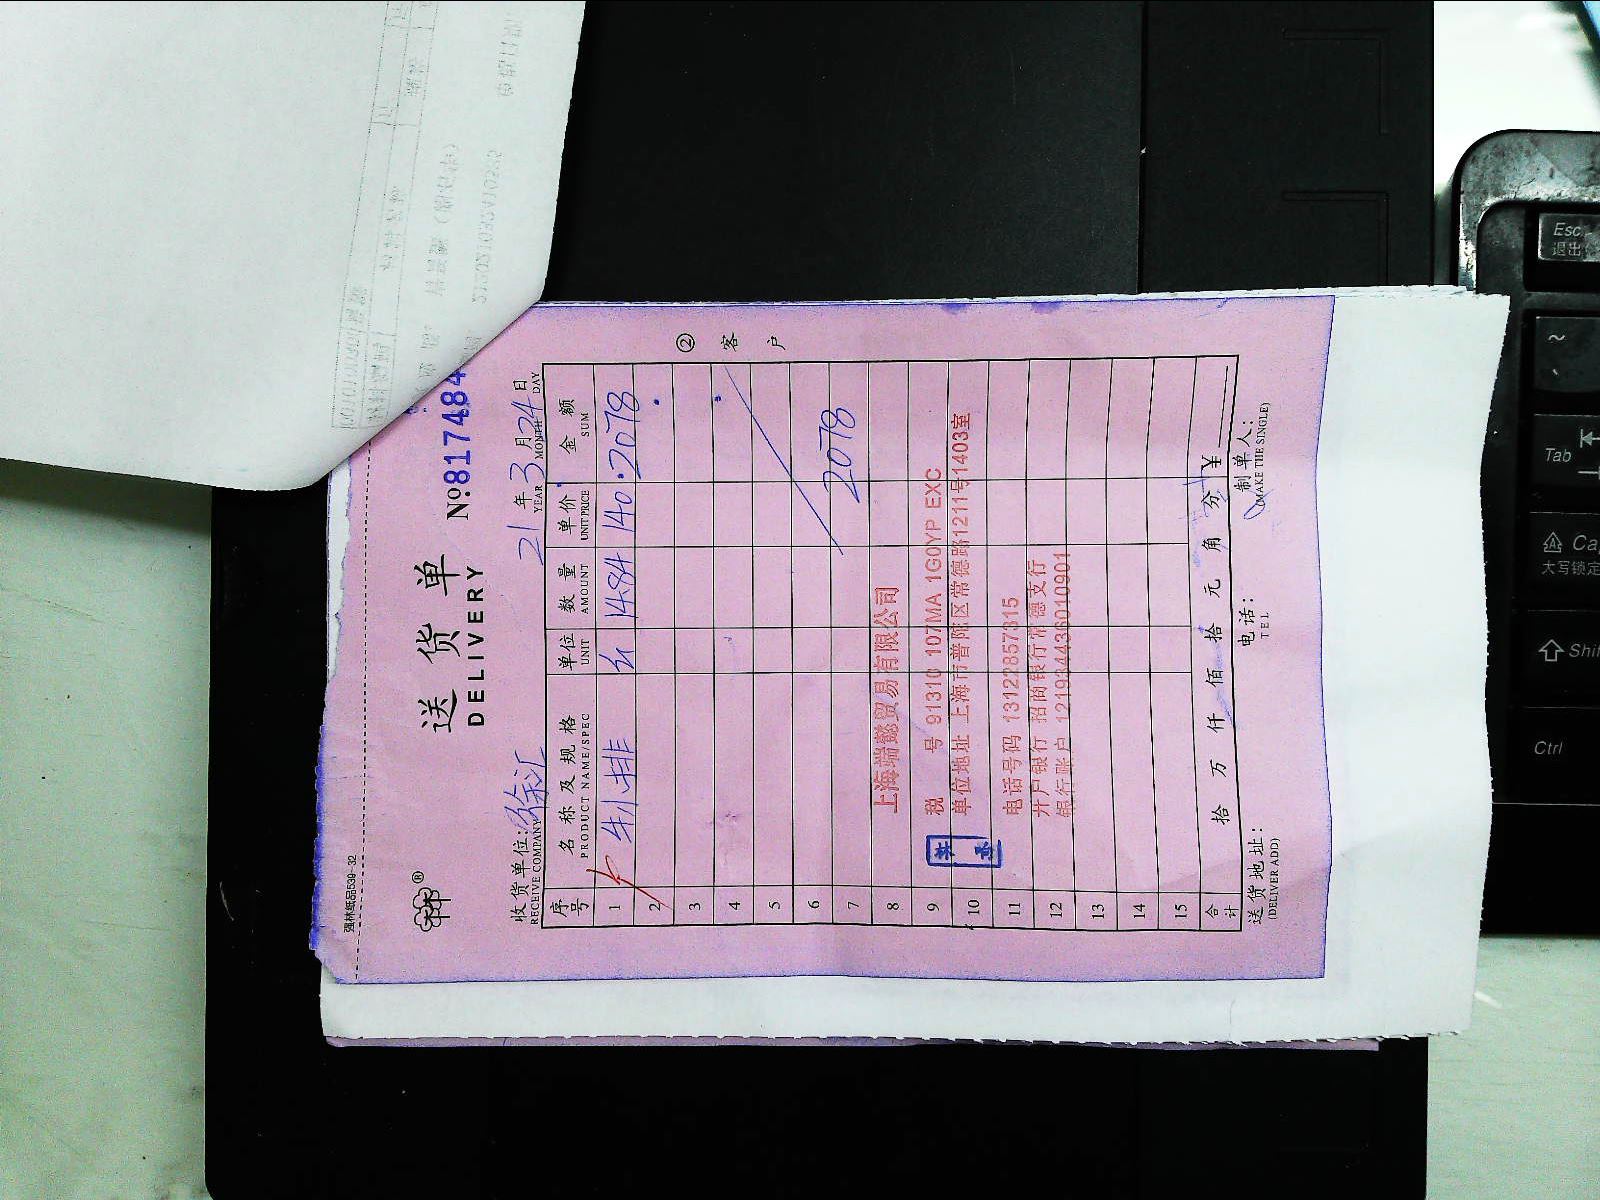 强林纸品539-32
送货单
DELIVERY
№:817484
收货单位:徐汇
RECEIVE COMPANY
21年3月24日
YEAR MONTH DAY
序号 名称及规格 单位 数量 单价 金额
PRODUCT NAME/SPEC UNIT AMOUNT UNITPRICE SUM
1 牛排 14.84 140. 2078.
2
3
4
5
6
7 2078
8 上海端懿贸易有限公司
9 税 号 91310 107MA 1G0YP EXC
10 单位地址 上海市普陀区常德路1211号1403室
11 电话号码 13122857315
12 开户银行 招商银行常德支行
银行账户 121934436010901
13
14
15
合计 拾 万 仟 佰 拾 元 角 分 ¥
送货地址: 电话: 制单人:
(DELIVER ADD) TEL (MAKE THE SINGLE)
② 客户
Esc
退出
~
Tab
Ca
大写锁定
Shif
Ctrl